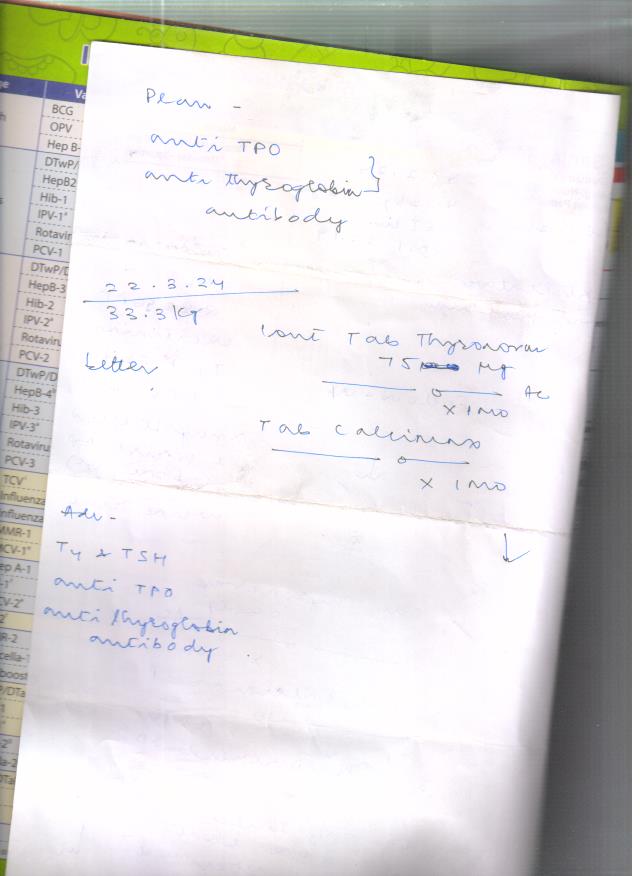 Plan -
anti TPO
anti thyroglobin }
antibody
22.3.24
33.3 kg
better
Cont Tab Thyronorm
75 Mg
Ac
x 1 MO
Tab Calcimax
x 1 MO
Adv -
T4 & TSH
anti TPO
anti thyroglobin
antibody
BCG
OPV
Hep B-
DTwP/
HepB2
Hib-1
IPV-1
Rotavir
PCV-1
DTwP/D
HepB-3
Hib-2
IPV-2
Rotaviru
PCV-2
DTwP/D
HepB-4
Hib-3
IPV-3
Rotaviru
PCV-3
TCV
nfluenza
nfluenza
MMR-1
ep A-1